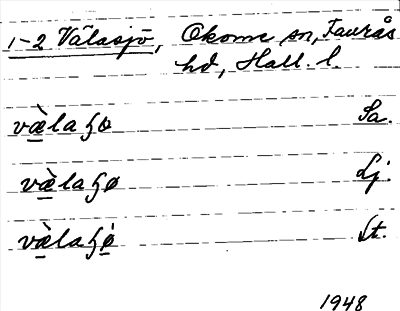 1-2 Välasjö, Okome sn, Faurås
hd, Hall. l.
væ̀laɧo Sa.
væ̀laɧø Lj.
væ̀laɧø̀ St.
1948